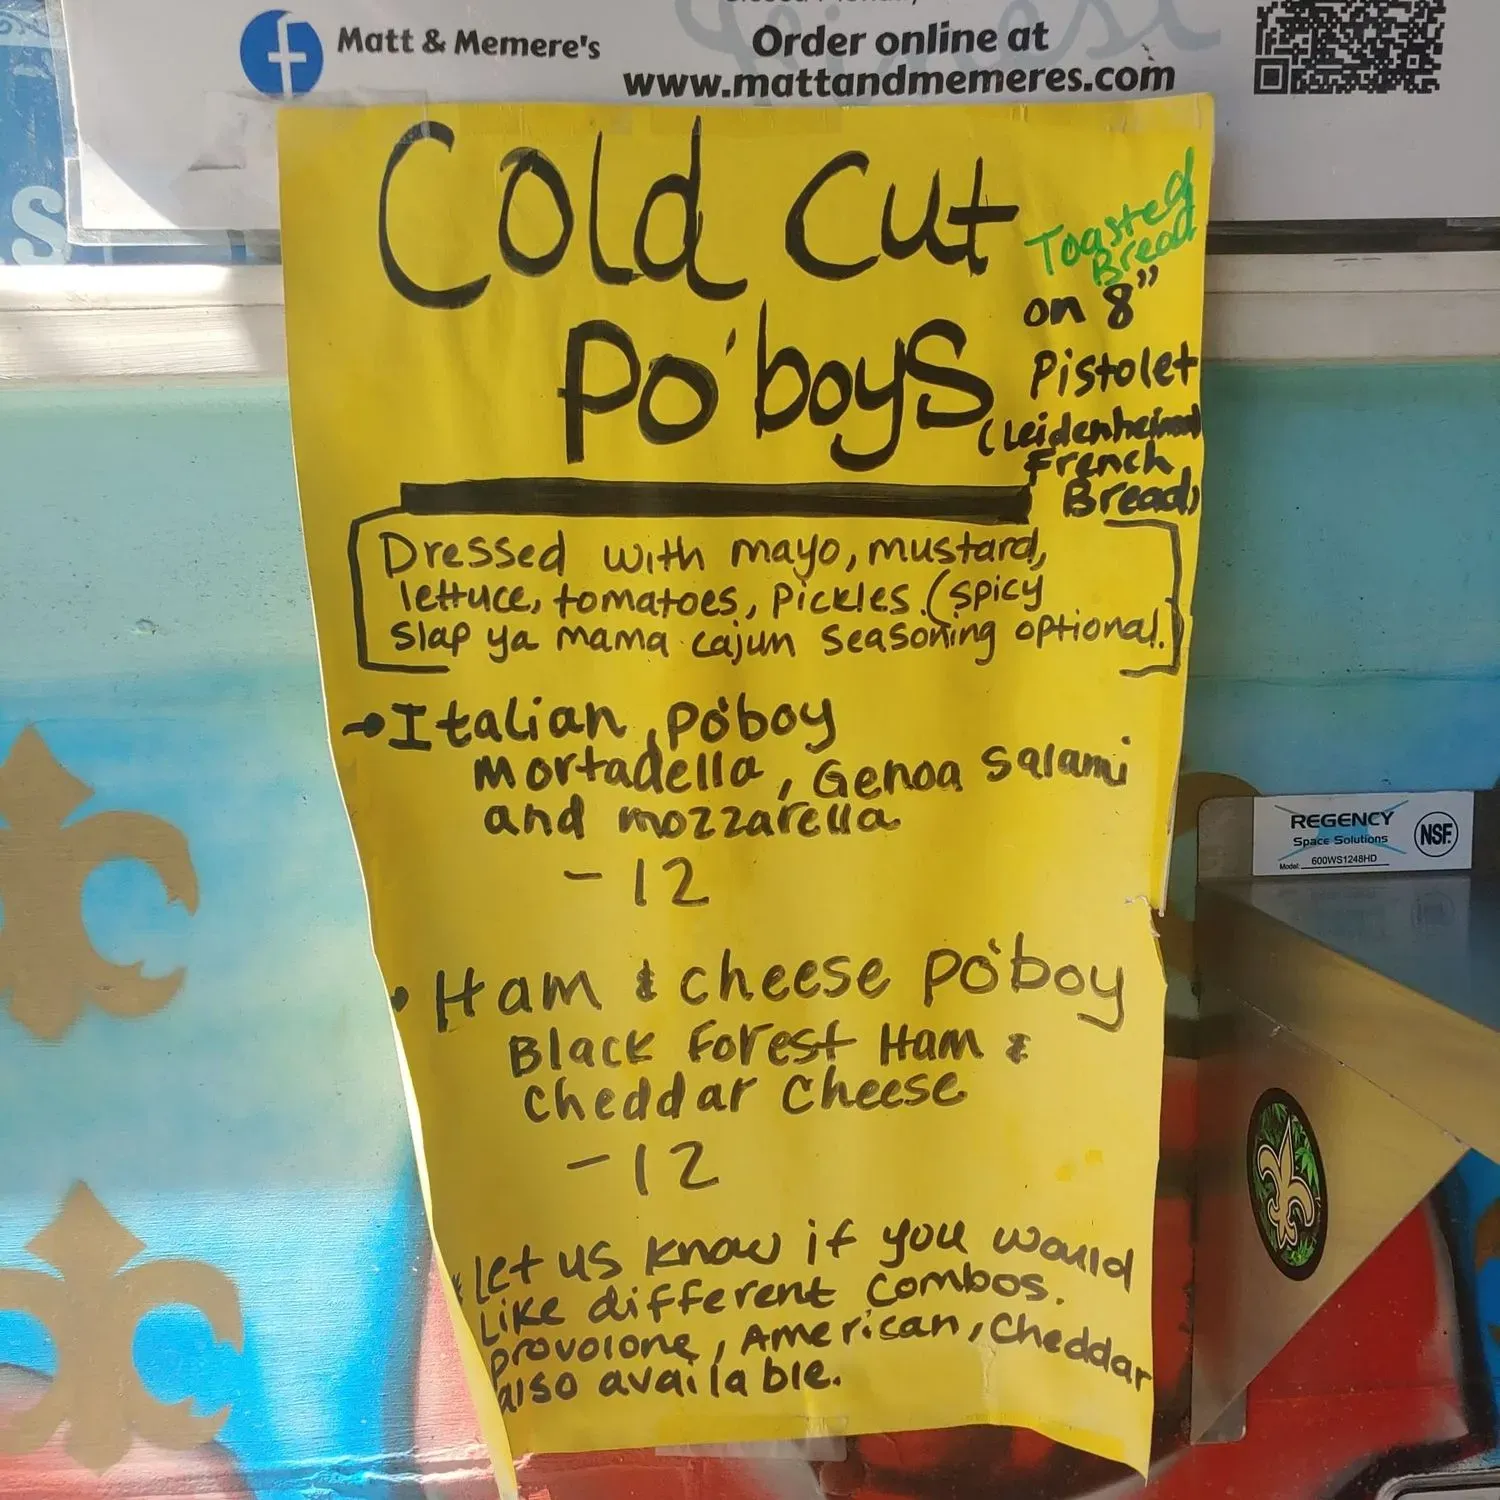 Matt & Memere's
Order online at
www.mattandmemeres.com
Cold Cut
Po'boys
Toasted
Bread
on 8"
Pistolet
(Leidenheimer
French
Bread)
Dressed with mayo, mustard,
lettuce, tomatoes, Pickles. (spicy
slap ya mama cajun seasoning optional.
Italian po'boy
Mortadella, Genoa Salami
and mozzarella
- 12
Ham & cheese po'boy
Black Forest Ham &
Cheddar Cheese
- 12
* Let us know if you would
Like different combos.
provolone, American, Cheddar
also available.
REGENCY
Space Solutions
Model: 600WS1248HD
NSF.